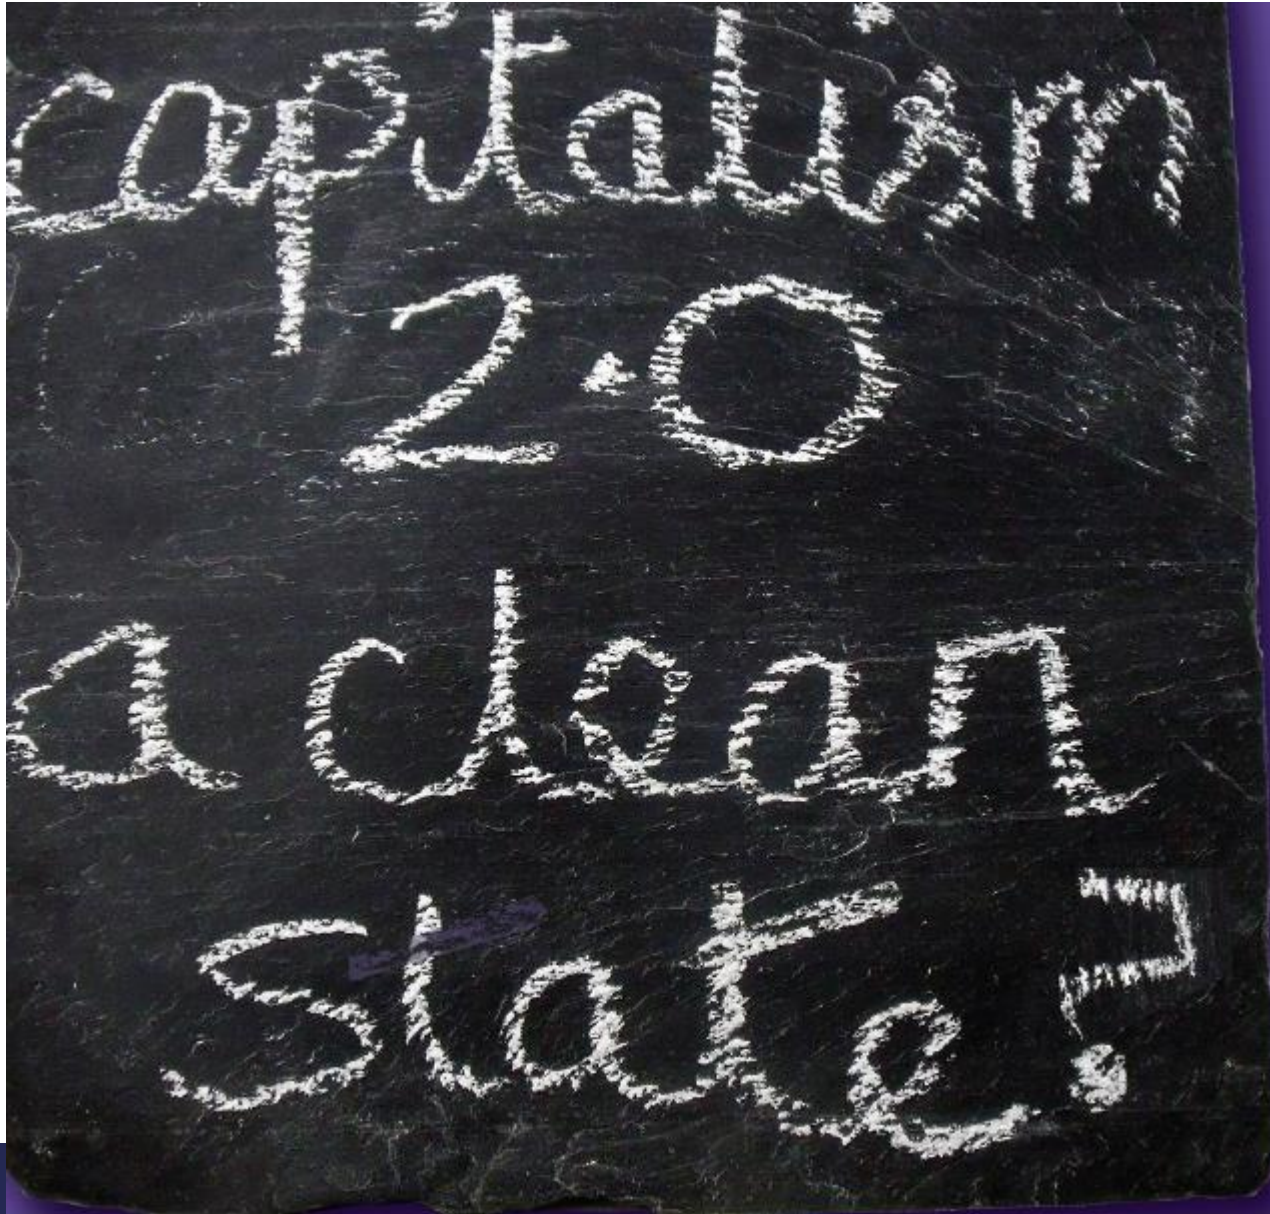 capitalism
2.0
a clean
slate?